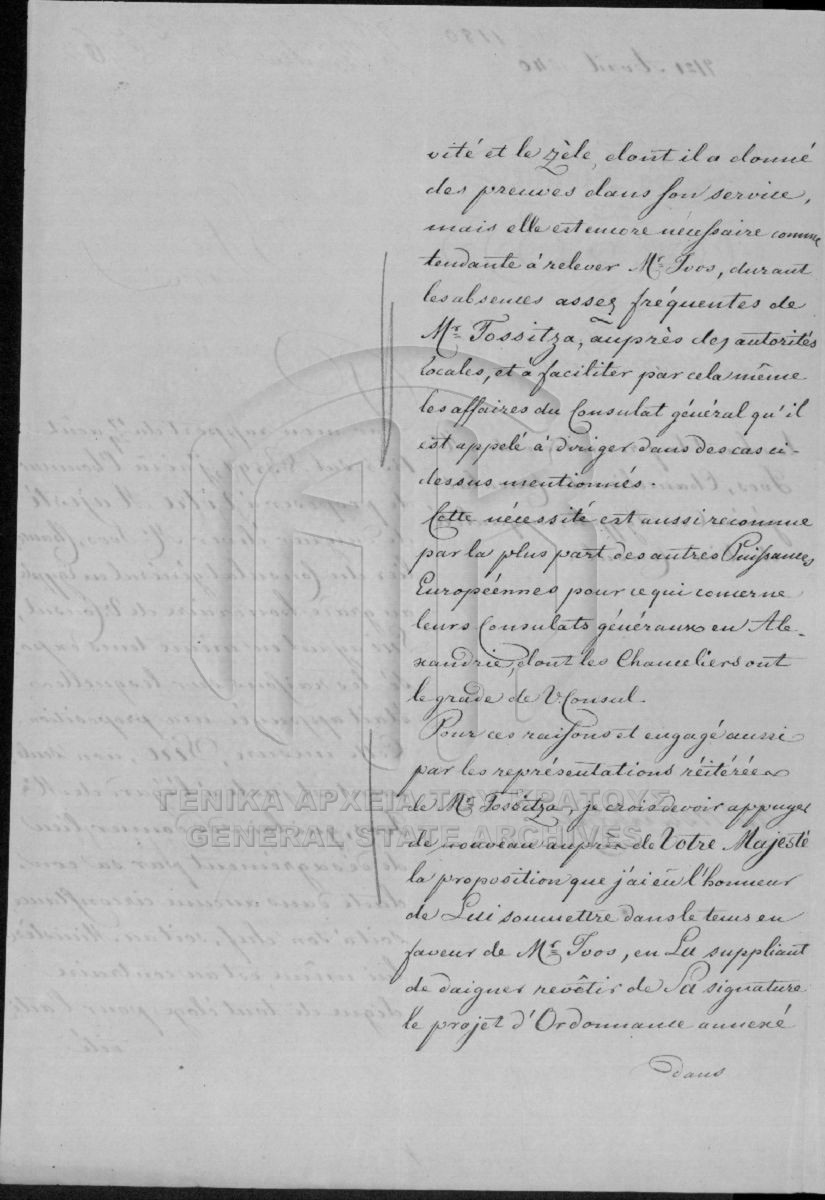 vité et le zèle, dont il a donné
des preuves dans son service,
mais elle est encore nécessaire comme
tendante à relever Mr Ivos, durant
les absences assez fréquentes de
Mr Tossitza, auprès des autorités
locales, et à faciliter par cela même
les affaires du Consulat général qu'il
est appelé à diriger dans des cas ci-
dessus mentionnés.
Cette nécessité est aussi reconnue
par la plus part des autres Puissances
Européennes pour ce qui concerne
leurs Consulats généraux en Ale-
xandrie, dont les Chanceliers ont
le grade de V. Consul.
Pour ces raisons et engagé aussi
par les représentations réitérées
de Mr Tossitza, je crois devoir appuyer
de nouveau auprès de Votre Majesté
la proposition que j'ai eu l'honneur
de Lui soumettre dans le tems en
faveur de Mr Ivos, en La suppliant
de daigner revêtir de Sa signature
le projet d'Ordonnance annexé
dans
ΓΕΝΙΚΑ ΑΡΧΕΙΑ ΤΟΥ ΚΡΑΤΟΥΣ
GENERAL STATE ARCHIVES